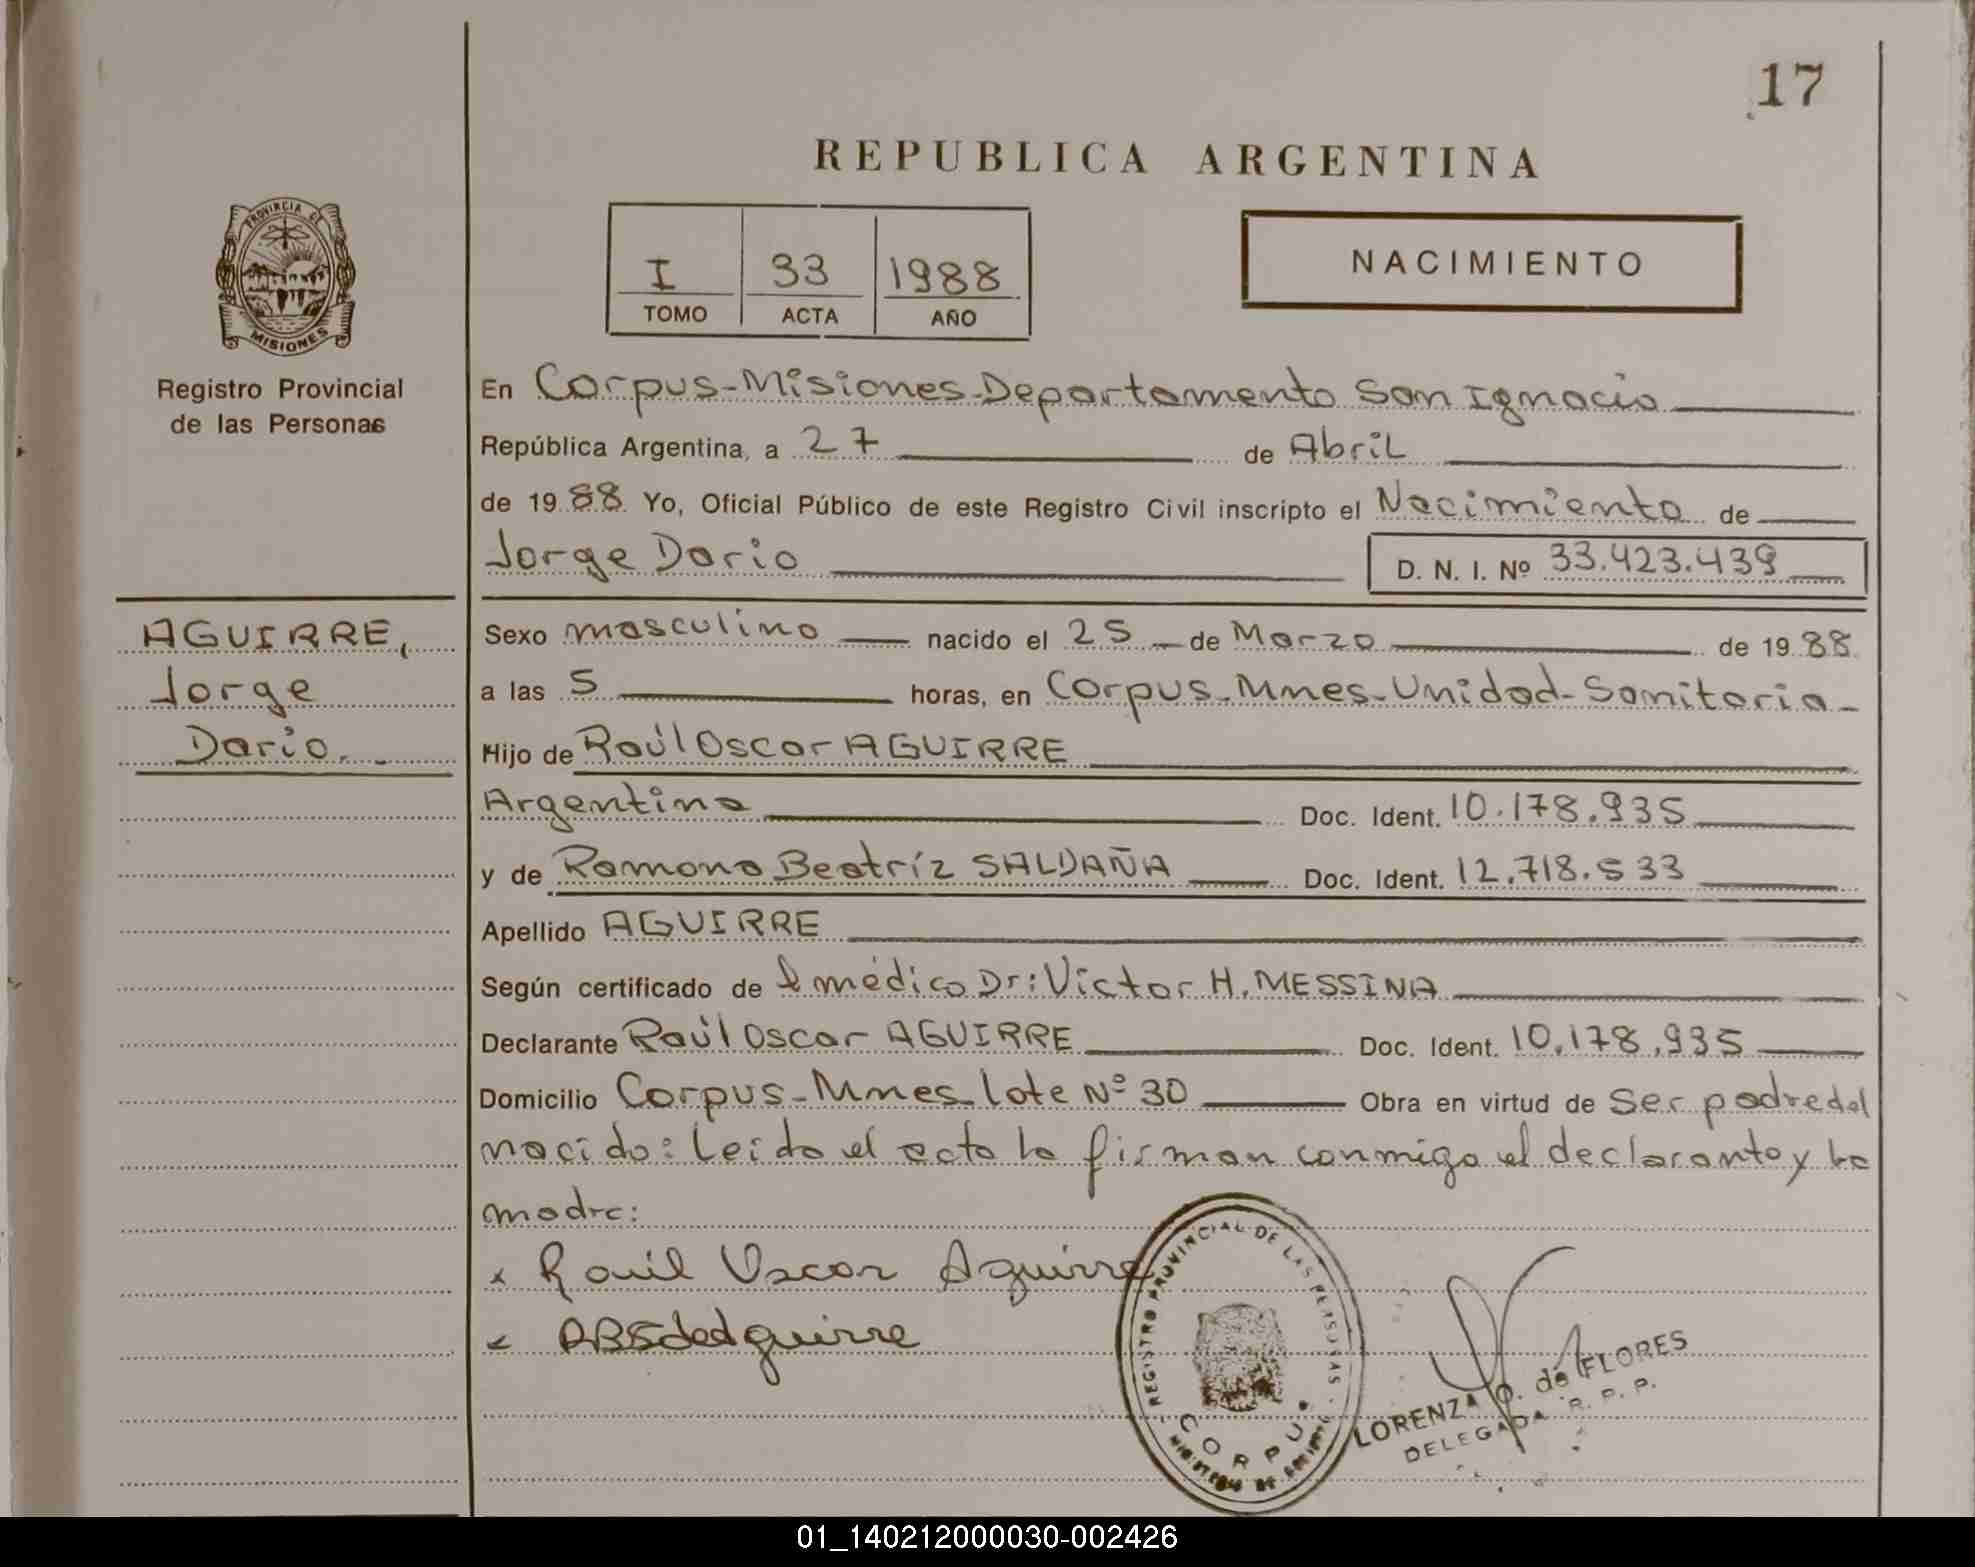 17
REPUBLICA ARGENTINA
PROVINCIA DE
MISIONES
Registro Provincial
de las Personas
I 33 1988
TOMO ACTA AÑO
NACIMIENTO
En Corpus-Misiones-Departamento San Ignacio
República Argentina, a 27 de Abril
de 1988 Yo, Oficial Público de este Registro Civil inscripto el Nacimiento de
Jorge Dario D. N. I. Nº 33.423.439
AGUIRRE,
Jorge
Dario.
Sexo masculino nacido el 25 de Marzo de 1988
a las 5 horas, en Corpus-Mnes-Unidad-Sanitaria-
Hijo de Raúl Oscar AGUIRRE
Argentina Doc. Ident. 10.178.935
y de Ramona Beatríz SALDAÑA Doc. Ident. 12.718.533
Apellido AGUIRRE
Según certificado de l médico Dr: Víctor H. MESSINA
Declarante Raúl Oscar AGUIRRE Doc. Ident. 10.178.935
Domicilio Corpus-Mnes-lote Nº 30 Obra en virtud de Ser padre del
nacido: Leido el acta la firman conmigo el declarante y la
madre:
x Raúl Oscar Aguirre
RBSdeAguirre
REGISTRO PROVINCIAL DE LAS PERSONAS
CORPUS
LORENZA O. de FLORES
DELEGADA R. P. P.
01_140212000030-002426